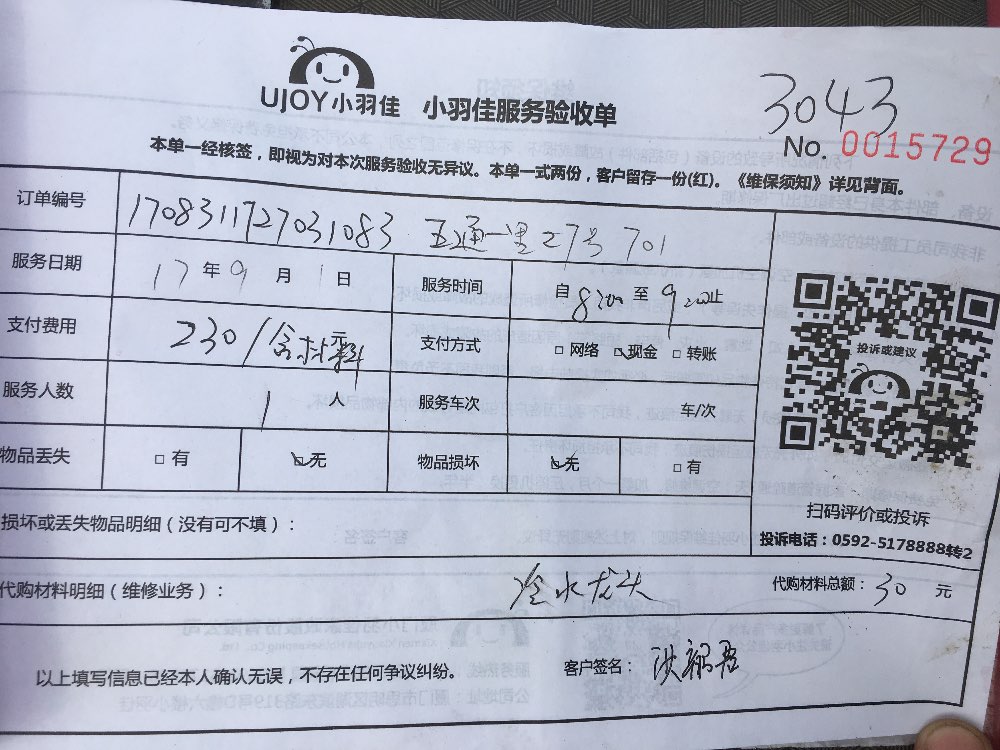 3043
UJOY小羽佳 小羽佳服务验收单
No. 0015729
本单一经核签，即视为对本次服务验收无异议。本单一式两份，客户留存一份(红)。《维保须知》详见背面。
订单编号 1708311727031083 五通一里27号701
服务日期 17年9月1日 服务时间 自8:00至9:00止
支付费用 230/含材料 支付方式 □网络 ☑现金 □转账
投诉或建议
服务人数 1人 服务车次 车/次
物品丢失 □有 ☑无 物品损坏 ☑无 □有
扫码评价或投诉
损坏或丢失物品明细（没有可不填）：
投诉电话：0592-5178888转2
代购材料明细（维修业务）： 冷水龙头 代购材料总额：30元
以上填写信息已经本人确认无误，不存在任何争议纠纷。 客户签名：洪